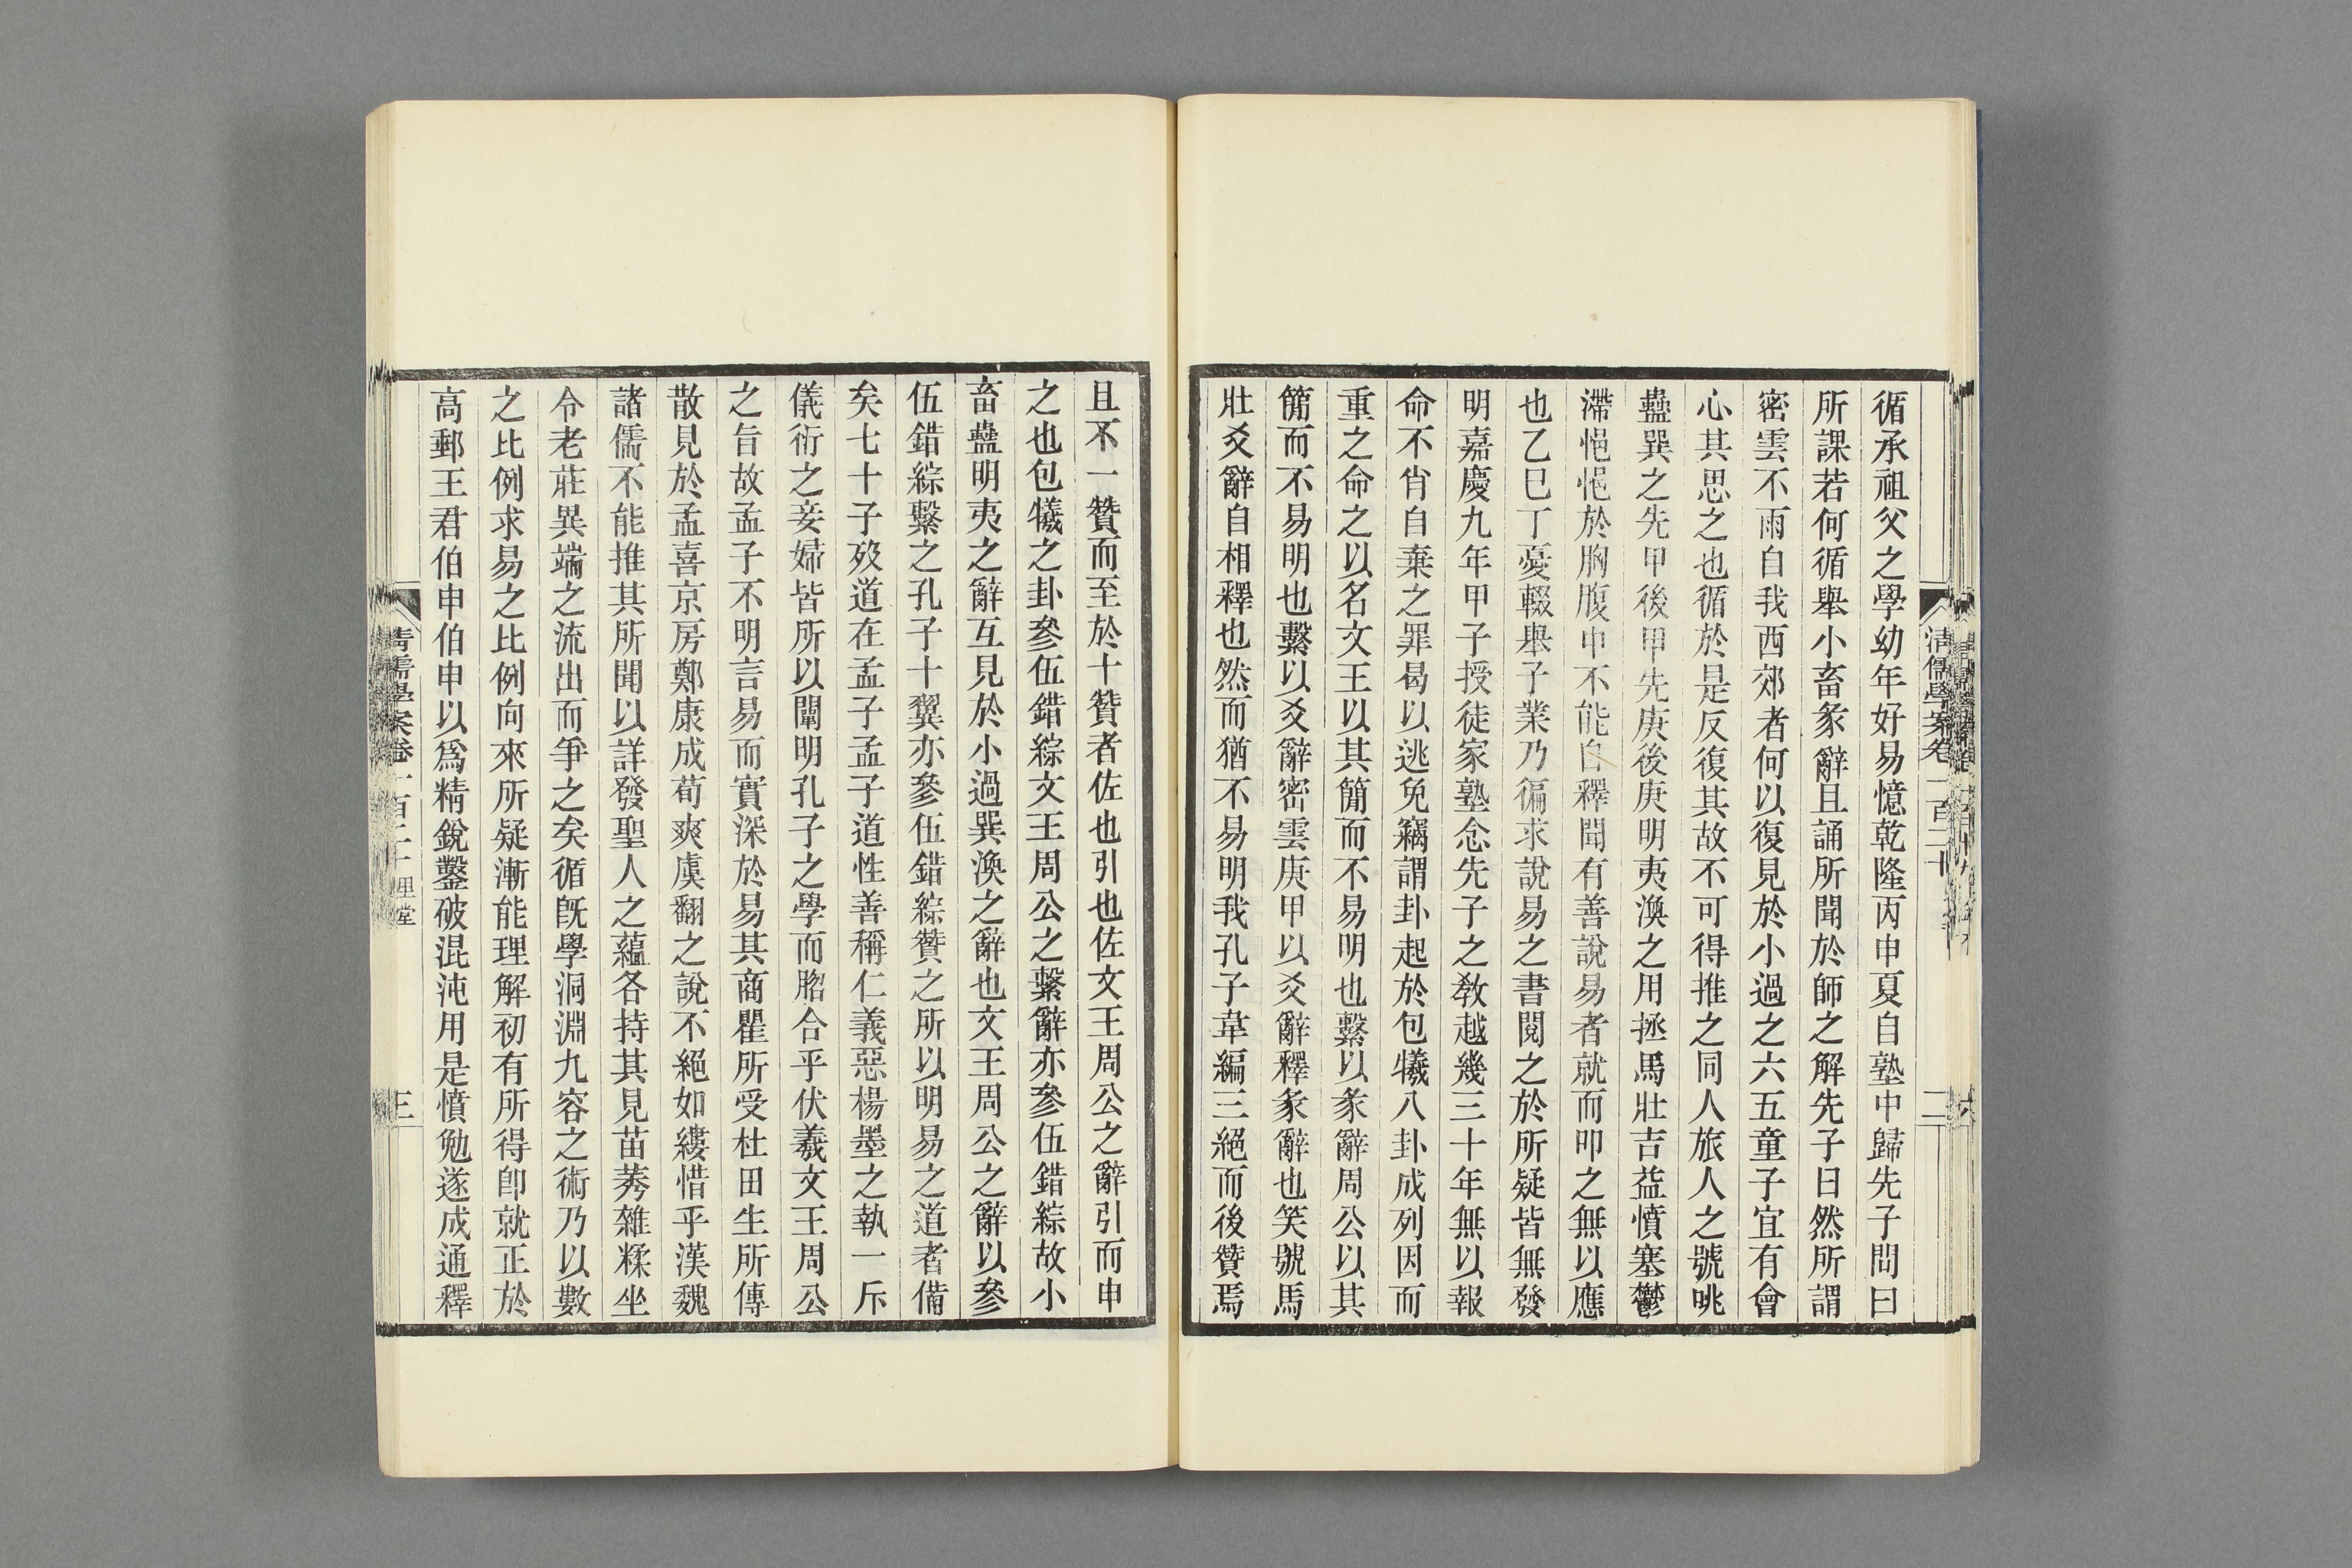 循承祖父之學幼年好易憶乾隆丙申夏自塾中歸先子問曰
所課若何循舉小畜彖辭且誦所聞於師之解先子曰然所謂
密雲不雨自我西郊者何以復見於小過之六五童子宜有會
心其思之也循於是反復其故不可得推之同人旅人之號咷
蠱巽之先甲後甲先庚後庚明夷渙之用拯馬壯吉益憤塞鬱
滯悒悒於胸腹中不能自釋聞有善說易者就而叩之無以應
也乙巳丁憂輟舉子業乃徧求說易之書閱之於所疑皆無發
明嘉慶九年甲子授徒家塾念先子之敎越幾三十年無以報
命不肖自棄之罪曷以逃免竊謂卦起於包犧八卦成列因而
重之命之以名文王以其簡而不易明也繫以彖辭周公以其
簡而不易明也繫以爻辭密雲庚甲以爻辭釋彖辭也笑號馬
壯爻辭自相釋也然而猶不易明我孔子韋編三絕而後贊焉
清儒學案卷一百二十
二
且不一贊而至於十贊者佐也引也佐文王周公之辭引而申
之也包犧之卦參伍錯綜文王周公之繫辭亦參伍錯綜故小
畜蠱明夷之辭互見於小過巽渙之辭也文王周公之辭以參
伍錯綜繫之孔子十翼亦參伍錯綜贊之所以明易之道者備
矣七十子歿道在孟子孟子道性善稱仁義惡楊墨之執一斥
儀衍之妾婦皆所以闡明孔子之學而䐇合乎伏羲文王周公
之旨故孟子不明言易而實深於易其商瞿所受杜田生所傳
散見於孟喜京房鄭康成荀爽虞翻之說不絕如縷惜乎漢魏
諸儒不能推其所聞以詳發聖人之蘊各持其見苗莠雜糅坐
令老莊異端之流出而爭之矣循旣學洞淵九容之術乃以數
之比例求易之比例向來所疑漸能理解初有所得卽就正於
高郵王君伯申伯申以爲精銳鑿破混沌用是憤勉遂成通釋
清儒學案卷一百二十 里堂
三